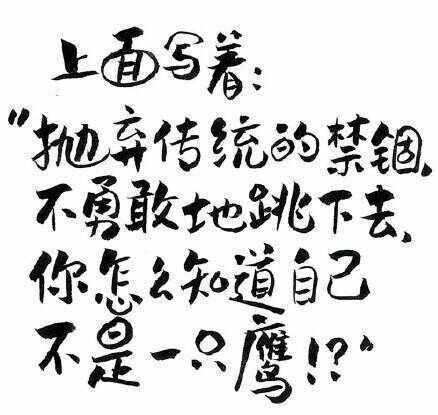 上面写着：
“抛弃传统的禁锢，
不勇敢地跳下去，
你怎么知道自己
不是一只鹰！？”